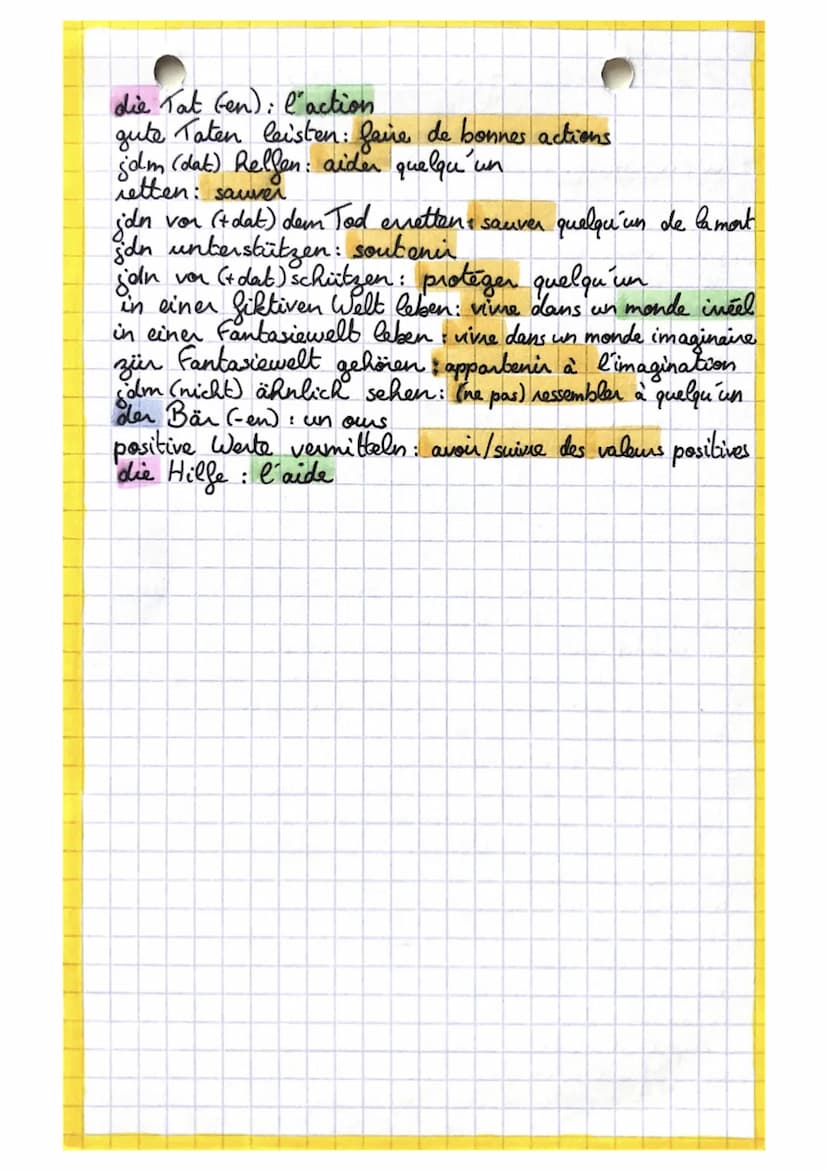 die Tat (-en) : l'action
gute Taten leisten : faire de bonnes actions
jdm (dat) helfen : aider quelqu'un
retten : sauver
jdn vor (+dat) dem Tod erretten : sauver quelqu'un de la mort
jdn unterstützen : soutenir
jdn vor (+dat) schützen : protéger quelqu'un
in einer fiktiven Welt leben : vivre dans un monde irréel
in einer Fantasiewelt leben : vivre dans un monde imaginaire
zür Fantasiewelt gehören : appartenir à l'imagination
jdm (nicht) ähnlich sehen : (ne pas) ressembler à quelqu'un
der Bär (-en) : un ours
positive Werte vermitteln : avoir/suivre des valeurs positives
die Hilfe : l'aide